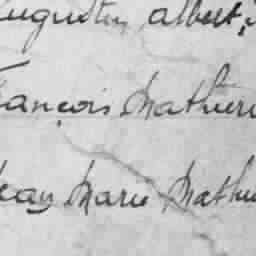 Augustin albert,
François Mathieu
Jean Marie Mathieu